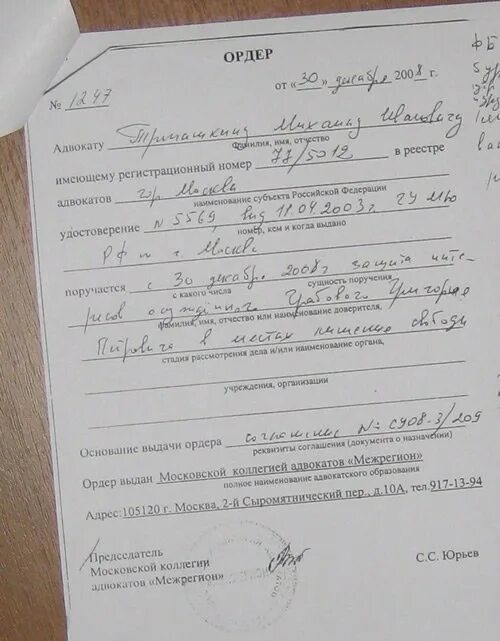 ОРДЕР
от «30» декабря 2008 г.
№ 1247
Адвокату Трепашкину Михаилу Ивановичу
фамилия, имя, отчество
имеющему регистрационный номер 77/5012 в реестре
адвокатов гор. Москва
наименование субъекта Российской Федерации
удостоверение N 5569, выд 11.04.2003г. ГУ МЮ
номер, кем и когда выдано
РФ по г. Москве
поручается с 30 декабря 2008г защита инте-
с какого числа сущность поручения,
ресов осуждённого Грабового Григория
фамилия, имя, отчество или наименование доверителя,
Петровича в местах лишения свободы
стадия рассмотрения дела и/или наименование органа,
учреждения, организации
Основание выдачи ордера соглашение № С908-3/209
реквизиты соглашения (документа о назначении)
Ордер выдан Московской коллегией адвокатов «Межрегион»
полное наименование адвокатского образования
Адрес:105120 г. Москва, 2-й Сыромятнический пер., д.10А, тел.917-13-94
Председатель
Московской коллегии
адвокатов «Межрегион» С.С. Юрьев